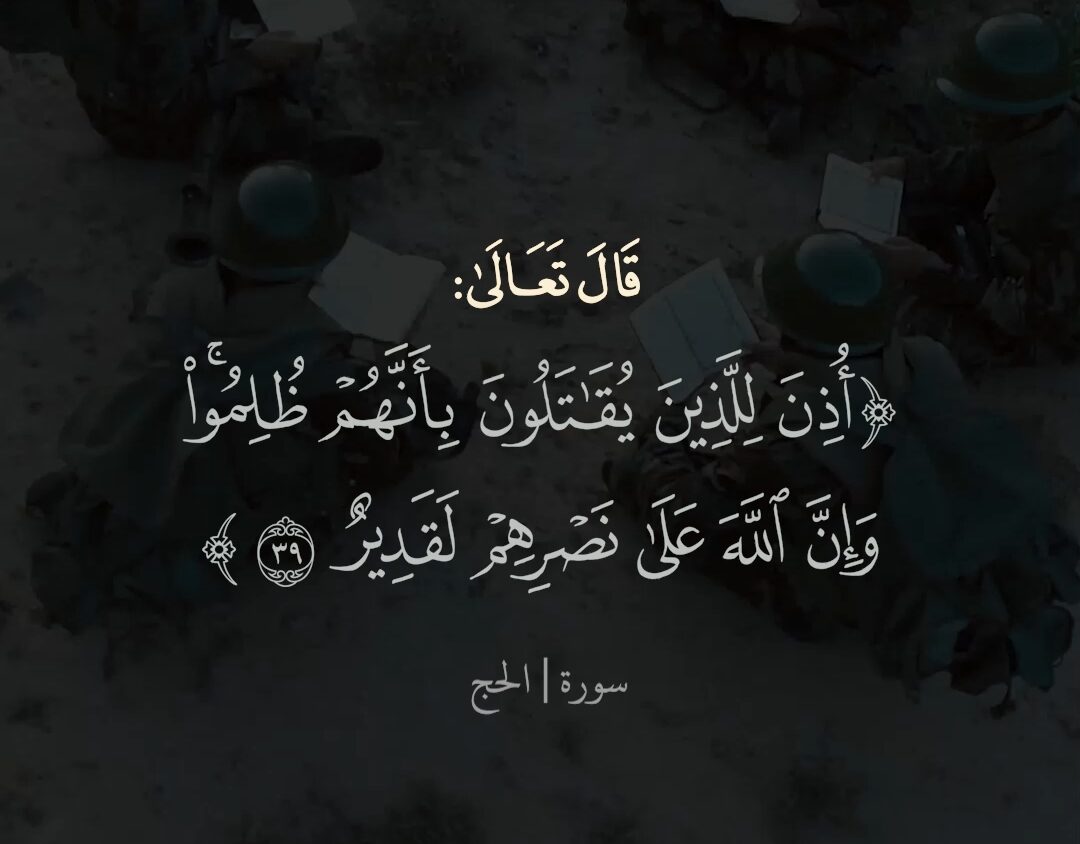 قَالَ تَعَالَىٰ:
﴿أُذِنَ لِلَّذِينَ يُقَٰتَلُونَ بِأَنَّهُمۡ ظُلِمُواْۚ
وَإِنَّ ٱللَّهَ عَلَىٰ نَصۡرِهِمۡ لَقَدِيرٌ ٣٩﴾
سورة | الحج